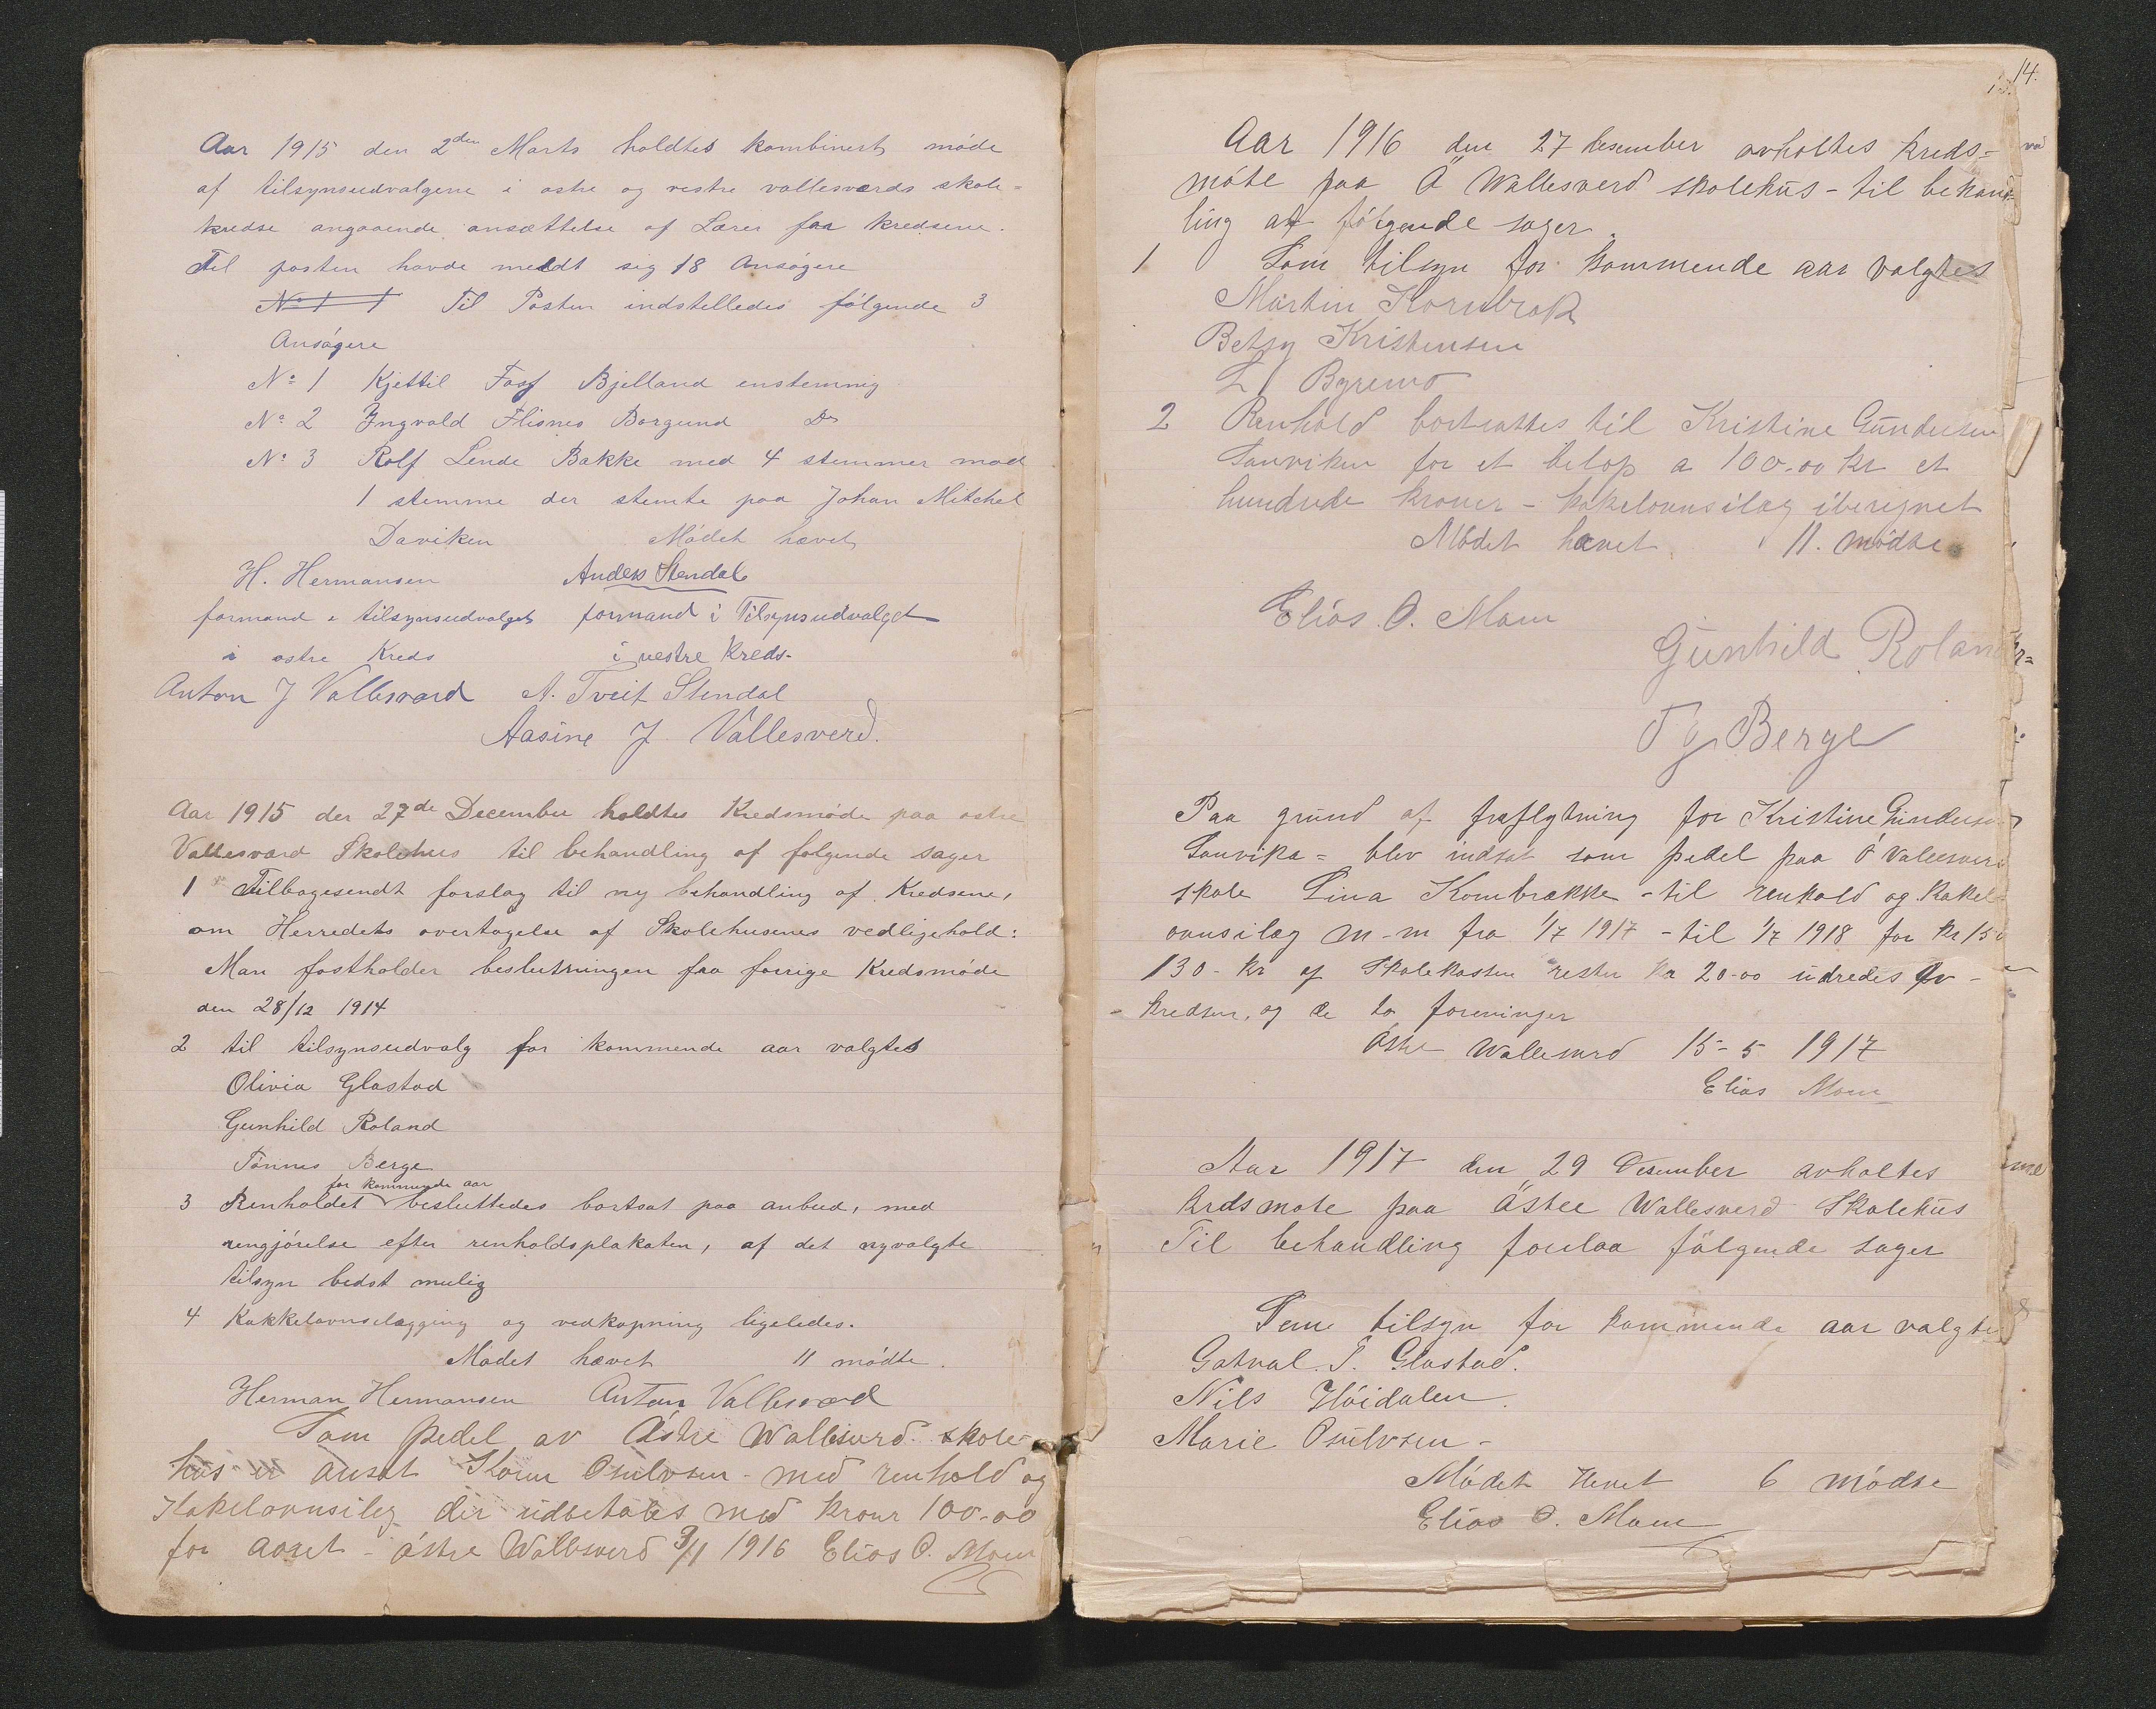 Aar 1915 den 2den Marts holdtes kombinert møde
af tilsynsudvalgene i østre og vestre vallesværds skole=
kredse angaaende ansættelse af Lærer faa kredsene.
Til posten havde meldt sig 18 Ansøgere
No 1 Til Posten indstilledes følgende 3
Ansøgere
No 1 Kjettil Foss Bjelland enstemmig
No 2 Ingvald Flisnes Borgund Do
No 3 Rolf Lende Bakke med 4 stemmer mod
1 stemme der stemte paa Johan Mitchel
Daviken Mødet hævet
H. Hermansen Anders Stendal
formand i tilsynsudvalget formand i Tilsynsudvalget
i østre Kreds i vestre Kreds-
Anton J Vallesværd A. Tveit Stendal
Aasine J Vallesverd.
Aar 1915 den 27de December holdtes Kredsmøde paa østre
Vallesværd Skolehus til behandling af følgende sager
1 Tilbagesendt forslag til ny behandling af Kredsene,
om Herredets overtagelse af Skolehusenes vedligehold:
Man fastholder beslutningen faa forrige Kredsmøde
den 28/12 1914
2 til tilsynsudvalg for kommende aar valgtes
Olivia Glastad
Gunhild Roland
Tønnes Berge
for kommende aar
3 Renholdet besluttedes bortsat paa anbud, med
rengjørelse efter renholdsplakaten, af det nyvalgte
tilsyn bedst mulig
4 Kakkelovnsilægging og vedkapning ligeledes.
Mødet hævet 11 mødte.
Herman Hermansen Anton Vallesværd
Som pedel av Østre Wallesverd skole-
hus er ansat Osulvsen - med renhold og
Kakelovnsileg der udbetales med kroner 100-00
for aaret - østre Wallesverd 3/11 1916 Elias O. Moen
14.
Aar 1916 den 27 desember avholtes kreds=
møte paa Ö Wallesverd skolehus - til behand-
ling af følgende sager.
1 Som tilsyn for kommende aar valgtes
Martin Kornbrek
Betsy Kristensen
L J Byremo
2 Renhold bortsattes til Kristine Gundersen
Sanviken for et beløp a 100-00 kr et
hundrede kroner - kakelovnsilæg iberegnet
Mødet hævet 11. mødte
Elias. O. Moen
Gunhild Roland
Tg Berge
Paa grund af fraflytning for Kristine Gundersen
Sanvika = blev indsat som pedel paa Ö Vallesverd
skole Lina Kornbrække - til renhold og kakel
ovnsilæg m-m fra 1/7 1917 - til 1/7 1918 for kr 150
130 - kr af Skolekassen resten kr 20-00 udredes av -
- kredsen, og de to foreninger
Østre Wallesverd 15-5 1917
Elias Moen
Aar 1917 den 29 Desember avholtes
krdsmøte paa Östre Wallesverd Skolehus
Til behandling forelaa følgende sager
Som tilsyn for kommende aar valgtes
Gotval. T. Glastad.
Nils Høidalen.
Marie Osulvsen -
Mødet Hevet 6 mødte
Elias O. Moen